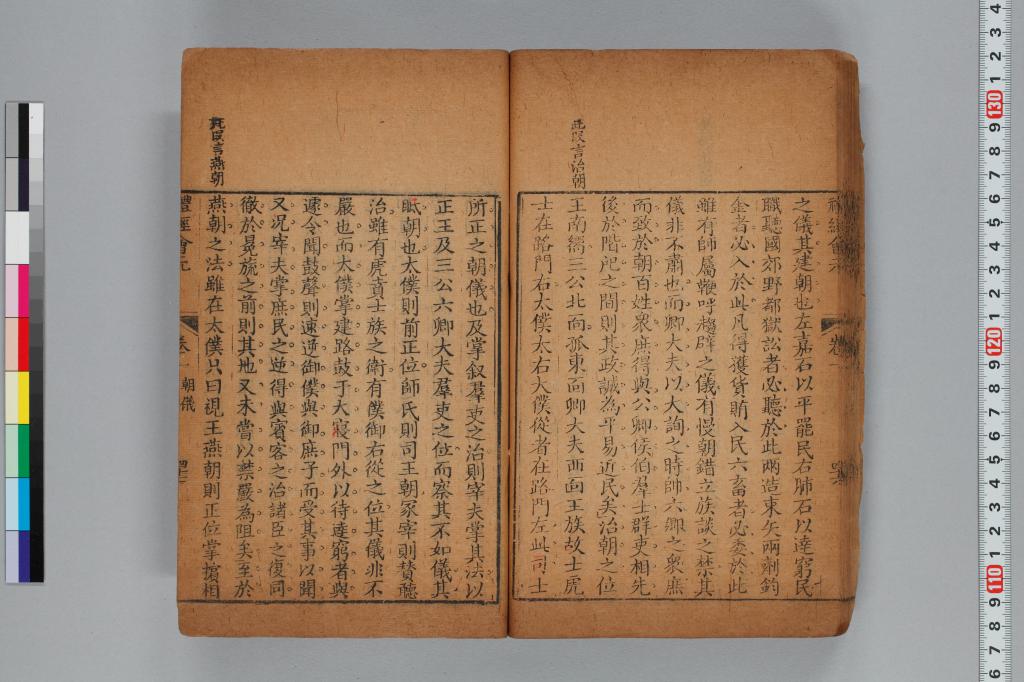 此段言治朝
之儀其建朝也左嘉石以平罷民右肺石以達窮民
職聽國郊野都獄訟者必聽於此兩造束矢兩劑鈞
金者必入於此凡得獲貨賄入民六畜者必委於此
雖有師屬鞭呼趨辟之儀有慢朝錯立族談之禁其
儀非不肅也而卿大夫以大詢之時帥六鄉之衆庶
而致於朝百姓衆庶得與公卿侯伯羣士群吏相先
後於階戺之間則其政誠為平易近民矣治朝之位
王南嚮三公北面孤東面卿大夫西面王族故士虎
士在路門右太僕太右大僕從者在路門左此司士
此段言燕朝
所正之朝儀也及掌叙羣吏之治則宰夫掌其法以
正王及三公六卿大夫羣吏之位而察其不如儀其
眡朝也太僕則前正位師氏則司王朝冢宰則賛聽
治雖有虎賁士族之衛有僕御右從之位其儀非不
嚴也而太僕掌建路鼓于大寢門外以待逹窮者與
遽令聞鼓聲則速逆御僕與御庶子而受其事以聞
又况宰夫掌庶民之逆得與賓客之治諸臣之復同
徹於冕旒之前則其地又未嘗以禁嚴為阻矣至於
燕朝之法雖在太僕只曰視王燕朝則正位掌擯相
禮經會元
卷一
朝儀